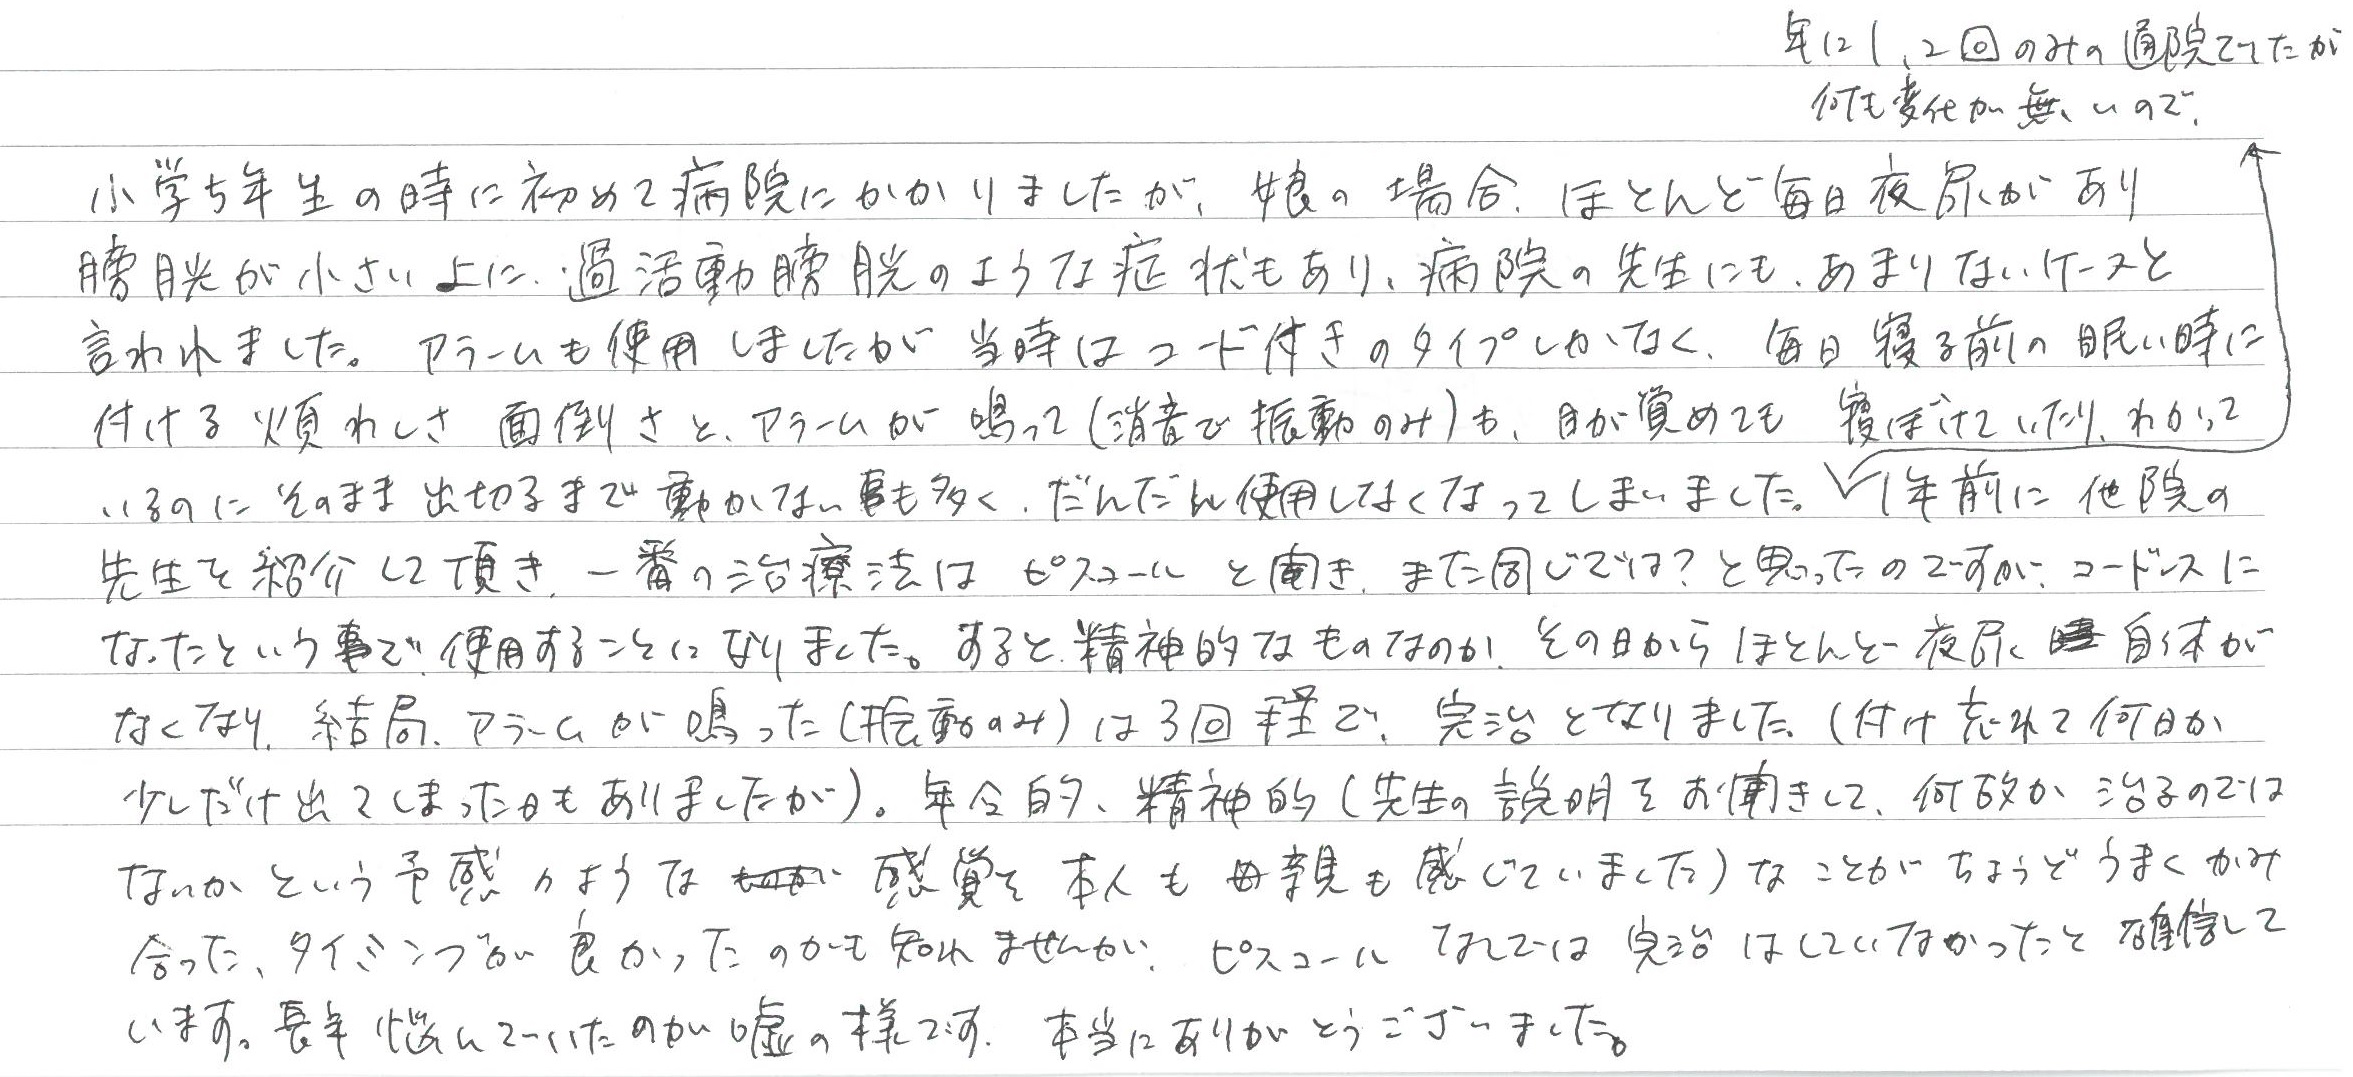 年に1、2回のみの通院でしたが
何も変化が無いので、
小学5年生の時に初めて病院にかかりましたが、娘の場合、ほとんど毎日夜尿があり
膀胱が小さい上に、過活動膀胱のような症状もあり、病院の先生にも、あまりないケースと
言われました。アラームも使用しましたが当時はコード付きのタイプしかなく、毎日寝る前の眠い時に
付ける煩わしさ 面倒さと、アラームが鳴って(消音で振動のみ)も、目が覚めても 寝ぼけていたり、わかって
いるのにそのまま出切るまで動かない事も多く、だんだん使用しなくなってしまいました。1年前に他院の
先生を紹介して頂き、一番の治療法は ピスコール と聞き、また同じでは?と思ったのですが、コードレスに
なったという事で、使用することになりました。すると、精神的なものなのか、その日からほとんど夜尿自体が
なくなり、結局、アラームが鳴った(振動のみ)は3回程で、完治となりました。(付け忘れて何日か
少しだけ出てしまった日もありましたが)。年令的、精神的(先生の説明をお聞きして、何故か治るのでは
ないかという予感のような感覚を本人も母親も感じていました)なことがちょうどうまくかみ
合った、タイミングが良かったのかも知れませんが、ピスコールなしでは完治はしていなかったと確信して
います。長年悩んでいたのが嘘の様です。本当にありがとうございました。